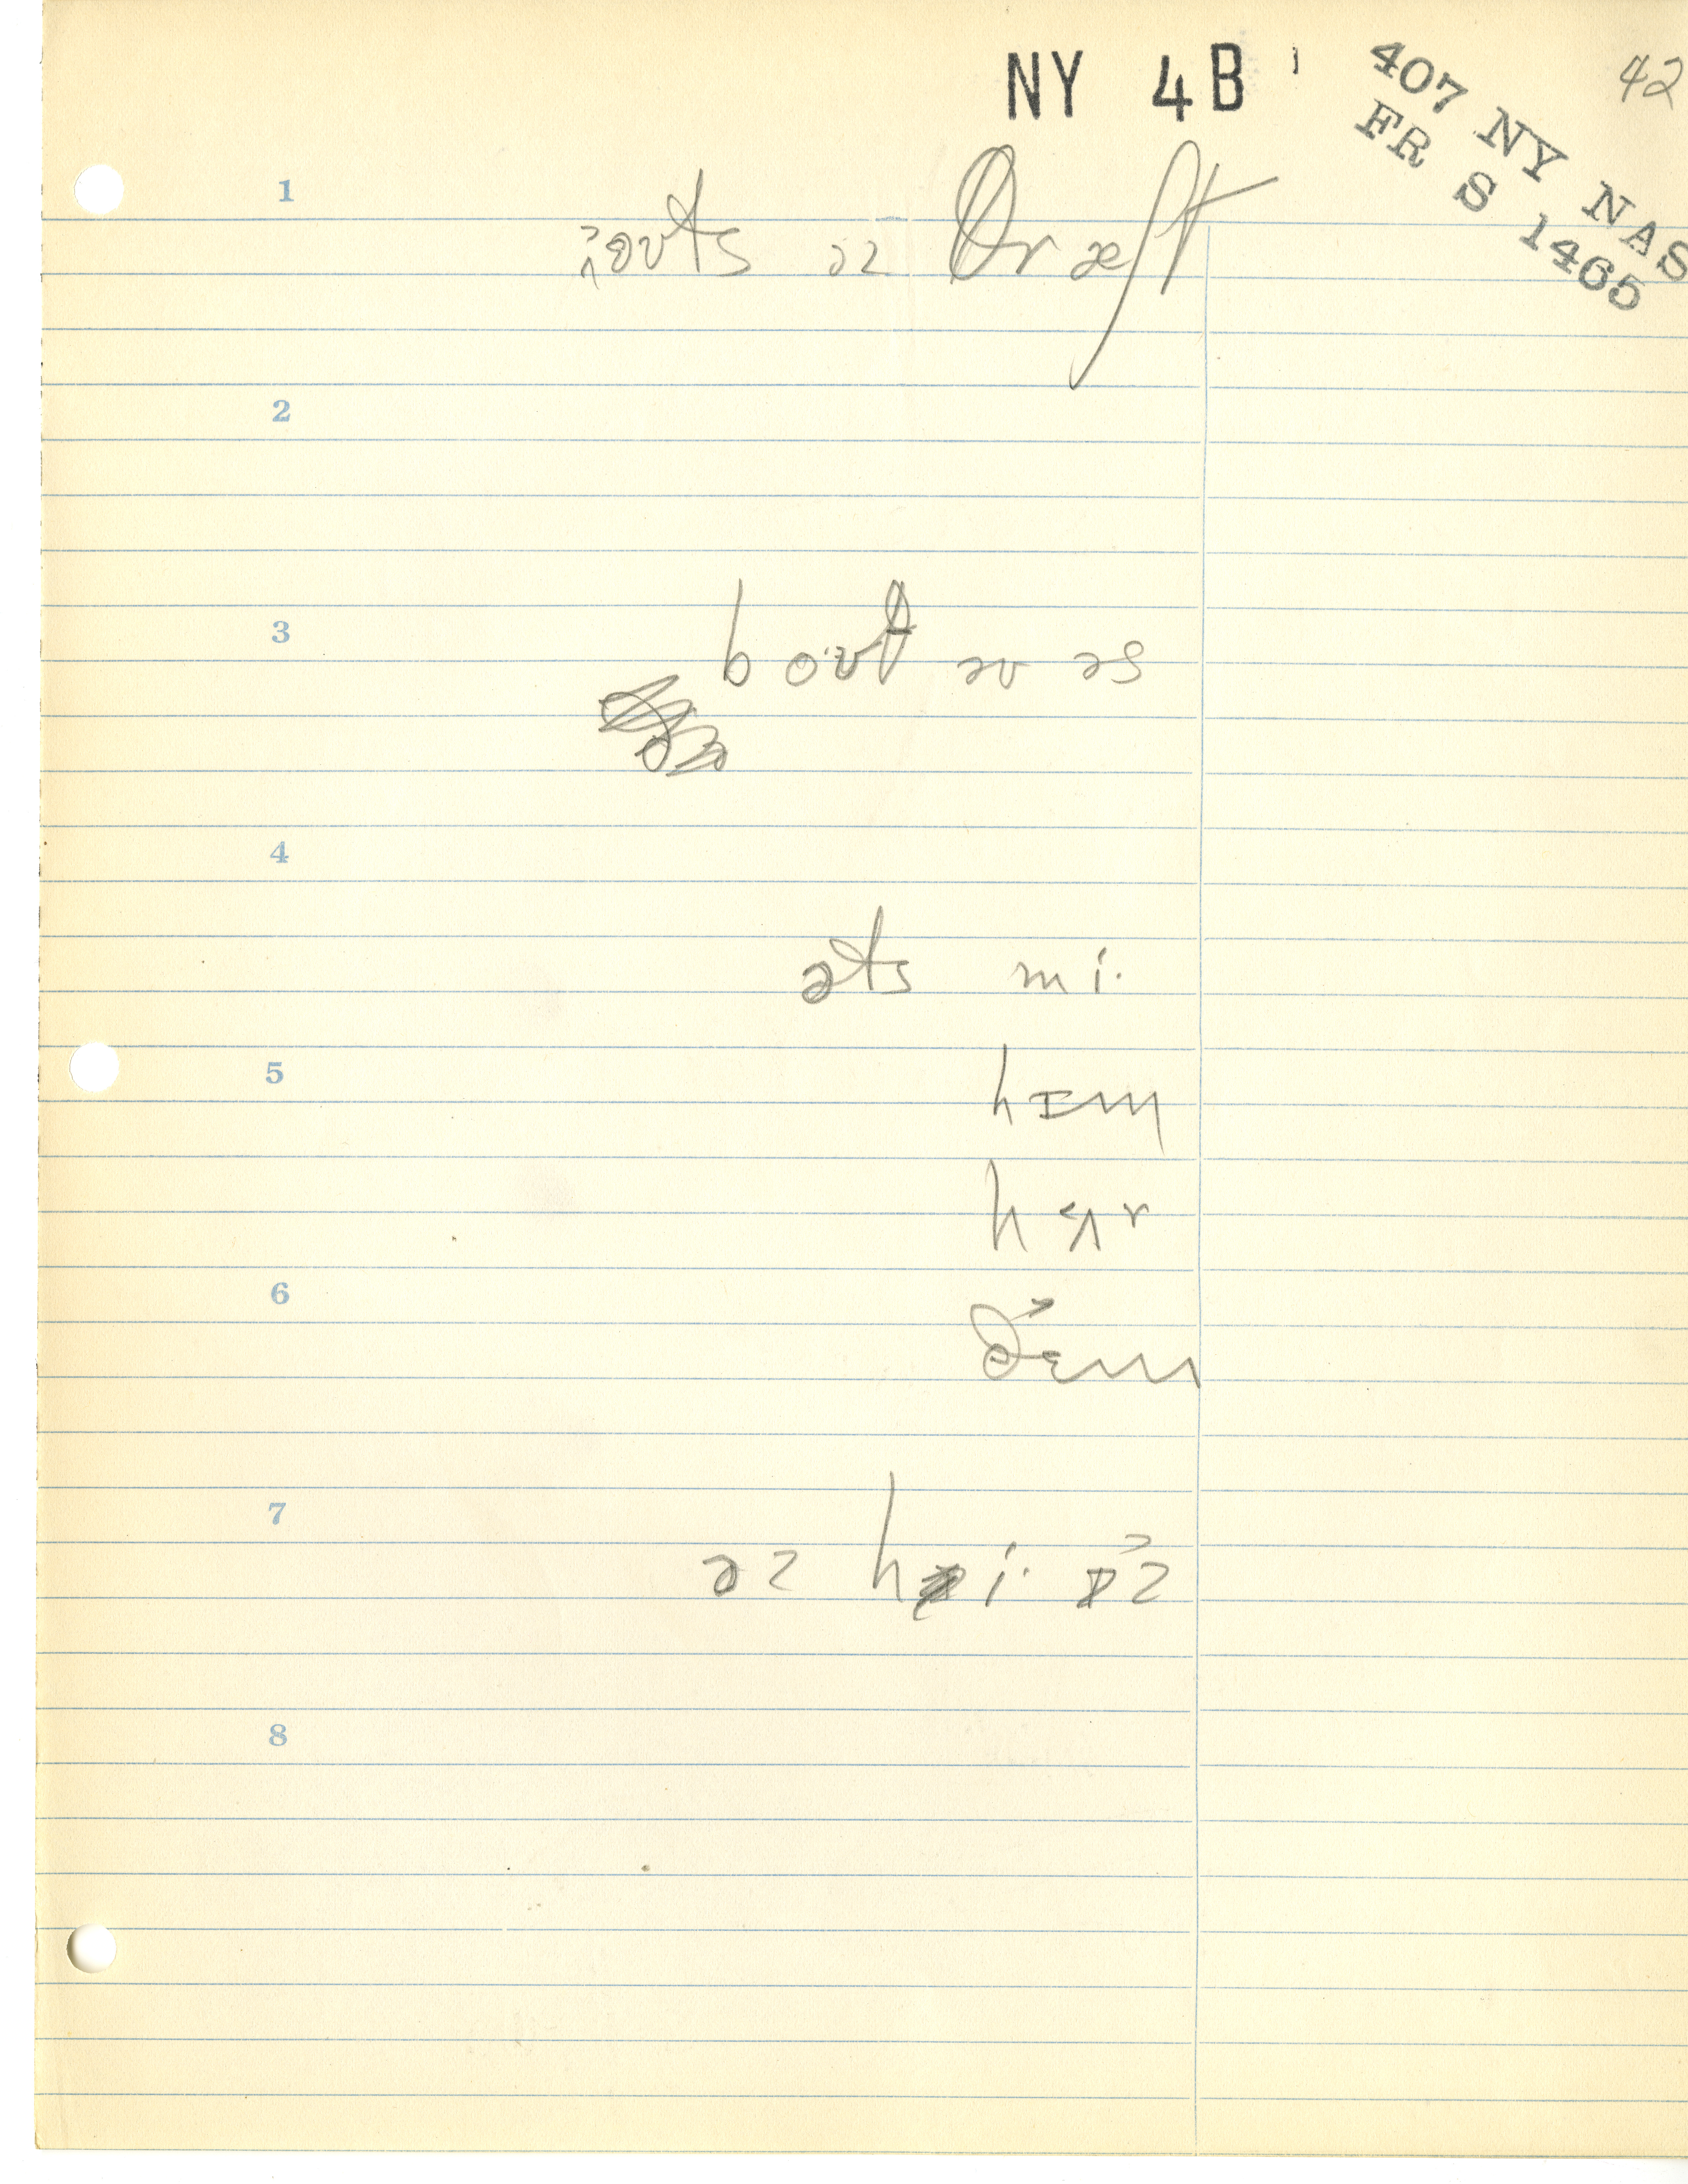 NY 4B
407 NY NAS
FR S 1465
42
1
əz dræft
2
3
boʊθ əv əs
4
əts mi·
5
hɪm
hɜr
6
ðɛm
7
əz hi· ɪz
8